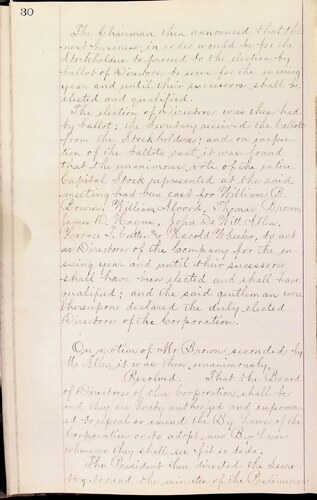 30
The Chairman then announced that the
next business in order would be for the
Stockholders to proceed to the election by
ballot of Directors to serve for the ensuing
year and until their successors shall be
elected and qualified.
The election of Directors was then had
by ballot; the Secretary received the ballots
from the Stockholders; and on inspec-
tion of the ballots cast, it was found
that the unanimous vote of the entire
Capital Stock represented at the said
meeting had been cast for William B.
William Moore, Thomas Brown,
James H. John De Witt Allen,
Wheeler, to act
as Directors of the Company for the en-
suing year and until their successors
shall have been elected and shall have
qualified; and the said gentlemen were
thereupon declared the duly elected
Directors of the Corporation.
On motion of Mr Brown, seconded by
Mr Allen it was then unanimously,
Resolved, That the Board
of Directors of this Corporation shall be
and they are hereby authorized and empower-
ed to repeal or amend the By Laws of the
Corporation or to adopt new By Laws
whenever they shall see fit so to do.
The President then directed the Secre-
tary to read the minutes of the Preliminary